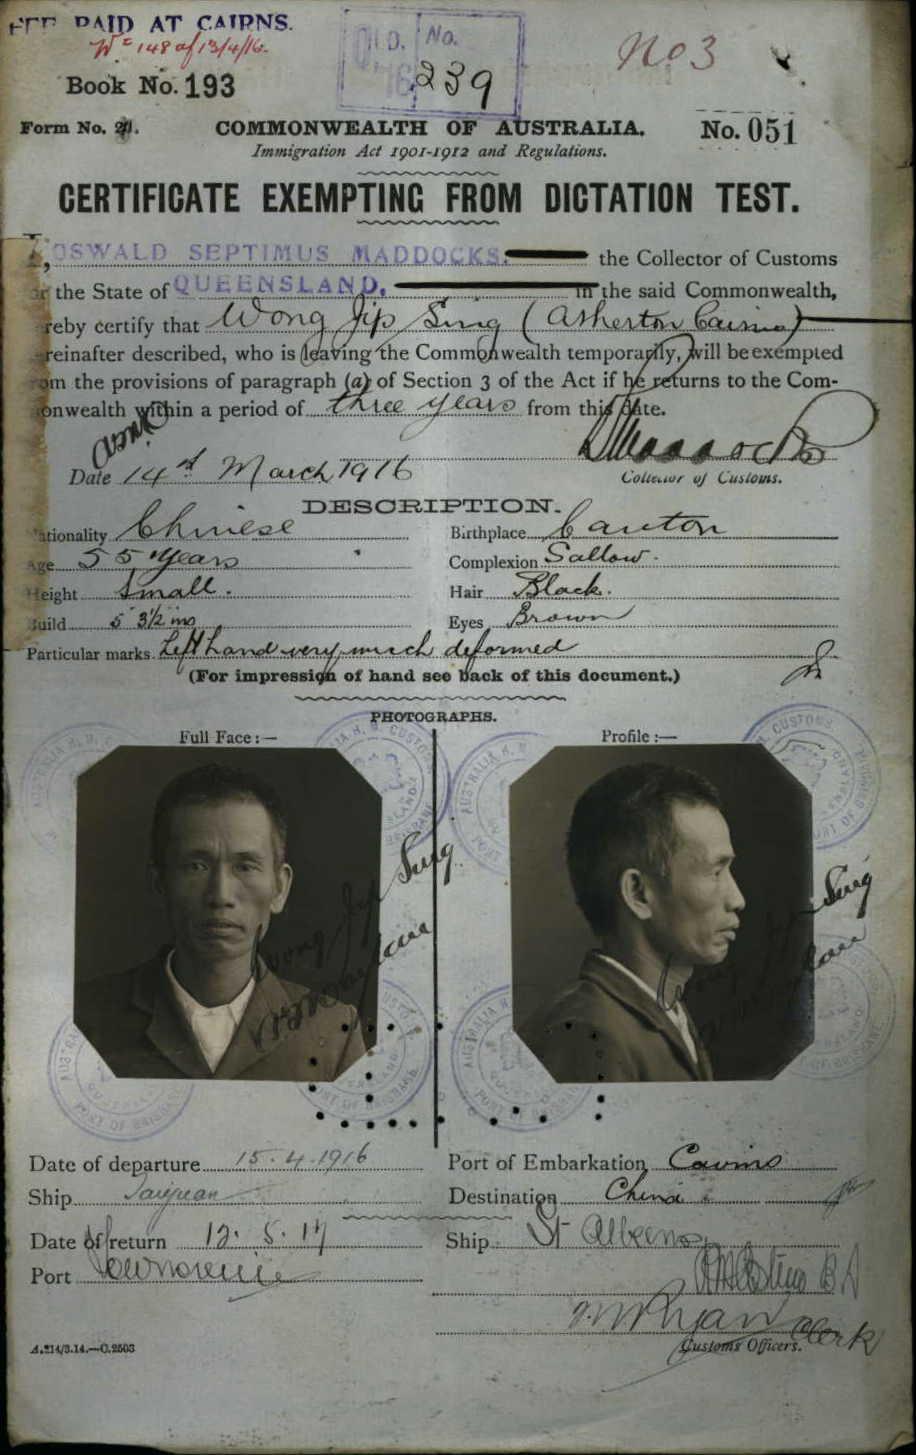 FEE PAID AT CAIRNS.
No 148 of 13/4/16.
Book No. 193
QLD. No.
16 239
No 3
Form No. 21.
COMMONWEALTH OF AUSTRALIA.
No. 051
Immigration Act 1901-1912 and Regulations.
CERTIFICATE EXEMPTING FROM DICTATION TEST.
I, OSWALD SEPTIMUS MADDOCKS. the Collector of Customs
for the State of QUEENSLAND. in the said Commonwealth,
reby certify that Wong Jip Sing (Atherton Cairns)
reinafter described, who is leaving the Commonwealth temporarily, will be exempted
om the provisions of paragraph (a) of Section 3 of the Act if he returns to the Com-
onwealth within a period of three years from this date.
Date 14th March 1916
OSMaddocks
Collector of Customs.
DESCRIPTION.
ationality Chinese
Birthplace Canton
Age 55 Years
Complexion Sallow.
Height Small.
Hair Black.
Build 5' 3½ ins
Eyes Brown
Particular marks. Left hand very much deformed
(For impression of hand see back of this document.)
PHOTOGRAPHS.
Full Face :—
Profile :—
Wong Jip Sing
Wong Jip Sing
PORT OF BRISBANE
Date of departure 15.4.1916
Port of Embarkation Cairns
Ship Taiyuan
Destination China
Date of return 12.5.17
Ship St Albans
Port Townsville
Ryan Clerk
Customs Officers.
A.214/3.14.—C.2503